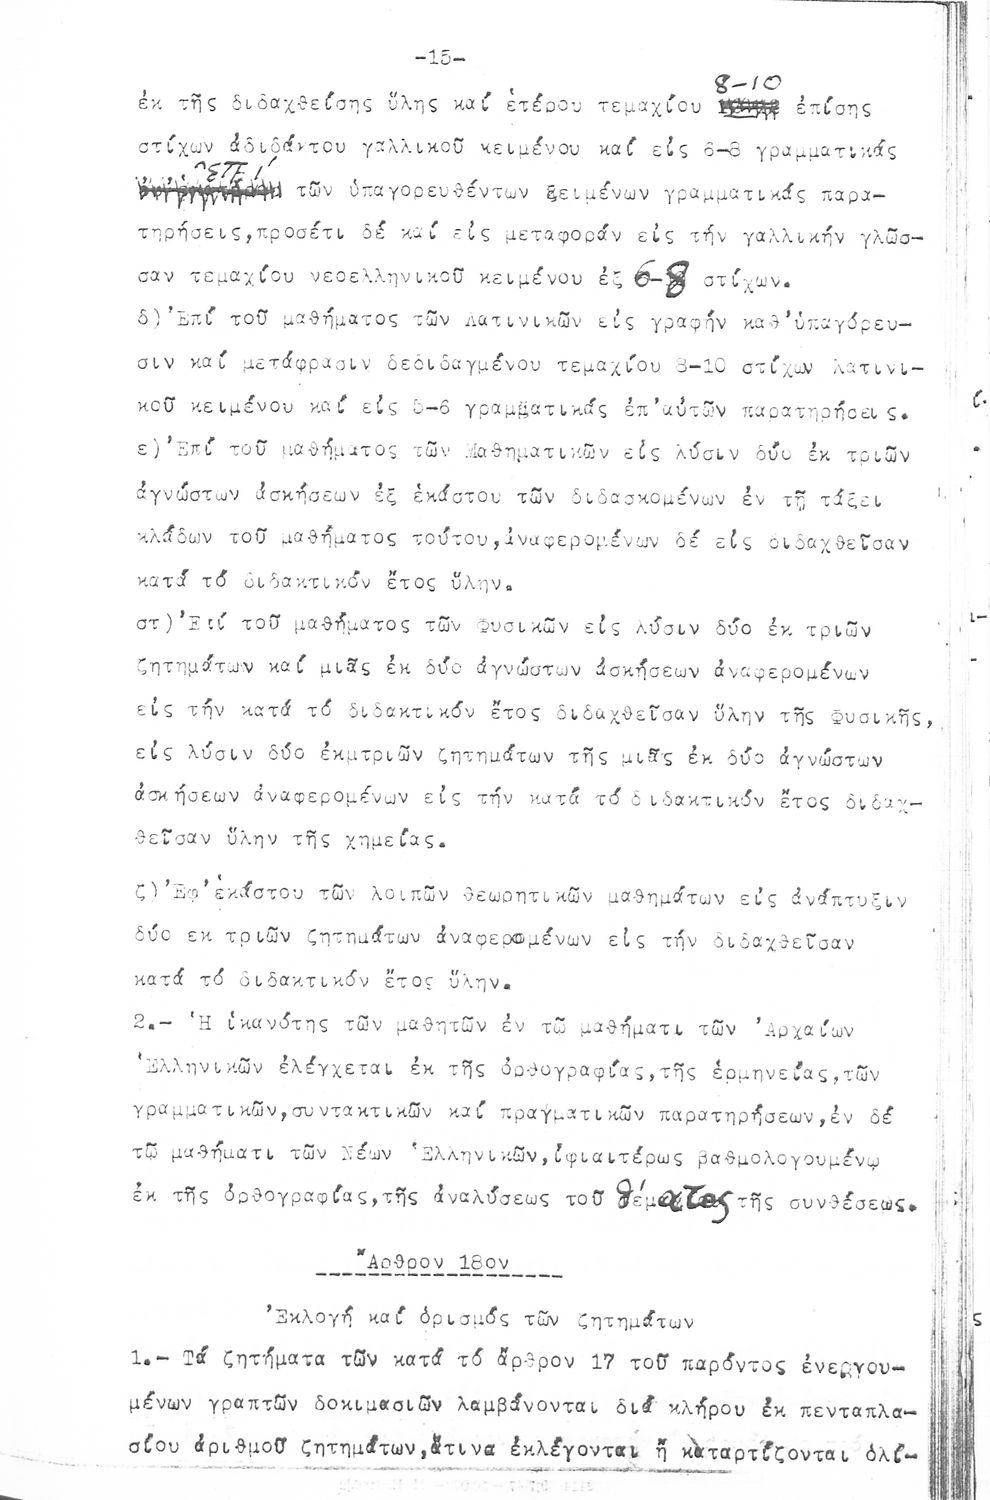 -15-
8-10
ἐκ τῆς διδαχθείσης ὕλης καί ἑτέρου τεμαχίου ἐπίσης
στίχων ἀδιδάκτου γαλλικοῦ κειμένου καί εἰς 6-8 γραμματικάς
ἐπί
τῶν ὑπαγορευθέντων ξειμένων γραμματικάς παρα-
τηρήσεις,προσέτι δέ καί εἰς μεταφοράν εἰς τήν γαλλικήν γλῶσ-
σαν τεμαχίου νεοελληνικοῦ κειμένου ἐξ 6-8 στίχων.
δ)'Επί τοῦ μαθήματος τῶν Λατινικῶν εἰς γραφήν καθ'ὑπαγόρευ-
σιν καί μετάφρασιν δεδιδαγμένου τεμαχίου 8-10 στίχων λατινι-
κοῦ κειμένου καί εἰς 5-6 γραμματικάς ἐπ'αὐτῶν παρατηρήσεις.
ε)'Επί τοῦ μαθήματος τῶν Μαθηματικῶν εἰς λύσιν δύο ἐκ τριῶν
ἀγνώστων ἀσκήσεων ἐξ ἑκάστου τῶν διδασκομένων ἐν τῇ τάξει
κλάδων τοῦ μαθήματος τούτου,ἀναφερομένων δέ εἰς διδαχθεῖσαν
κατά τό διδακτικόν ἔτος ὕλην.
στ)'Επί τοῦ μαθήματος τῶν Φυσικῶν εἰς λύσιν δύο ἐκ τριῶν
ζητημάτων καί μιᾶς ἐκ δύο ἀγνώστων ἀσκήσεων ἀναφερομένων
εἰς τήν κατά τό διδακτικόν ἔτος διδαχθεῖσαν ὕλην τῆς Φυσικῆς,
εἰς λύσιν δύο ἐκμτριῶν ζητημάτων τῆς μιᾶς ἐκ δύο ἀγνώστων
ἀσκήσεων ἀναφερομένων εἰς τήν κατά τό διδακτικόν ἔτος διδαχ-
θεῖσαν ὕλην τῆς χημείας.
ζ)'Εφ'ἑκάστου τῶν λοιπῶν θεωρητικῶν μαθημάτων εἰς ἀνάπτυξιν
δύο εκ τριῶν ζητημάτων ἀναφερομένων εἰς τήν διδαχθεῖσαν
κατά τό διδακτικόν ἔτος ὕλην.
2.- Ἡ ἱκανότης τῶν μαθητῶν ἐν τῷ μαθήματι τῶν 'Αρχαίων
Ἑλληνικῶν ἐλέγχεται ἐκ τῆς ὀρθογραφίας,τῆς ἑρμηνείας,τῶν
γραμματικῶν,συντακτικῶν καί πραγματικῶν παρατηρήσεων,ἐν δέ
τῷ μαθήματι τῶν Νέων Ἑλληνικῶν,ἰφιαιτέρως βαθμολογουμένῳ
ἐκ τῆς ὀρθογραφίας,τῆς ἀναλύσεως τοῦ θέματος τῆς συνθέσεως.
Ἄρθρον 18ον
'Εκλογή καί ὁρισμός τῶν ζητημάτων
1.- Τά ζητήματα τῶν κατά τό ἄρθρον 17 τοῦ παρόντος ἐνεργου-
μένων γραπτῶν δοκιμασιῶν λαμβάνονται διά κλήρου ἐκ πενταπλα-
σίου ἀριθμοῦ ζητημάτων,ἅτινα ἐκλέγονται ἤ καταρτίζονται ὀλί-